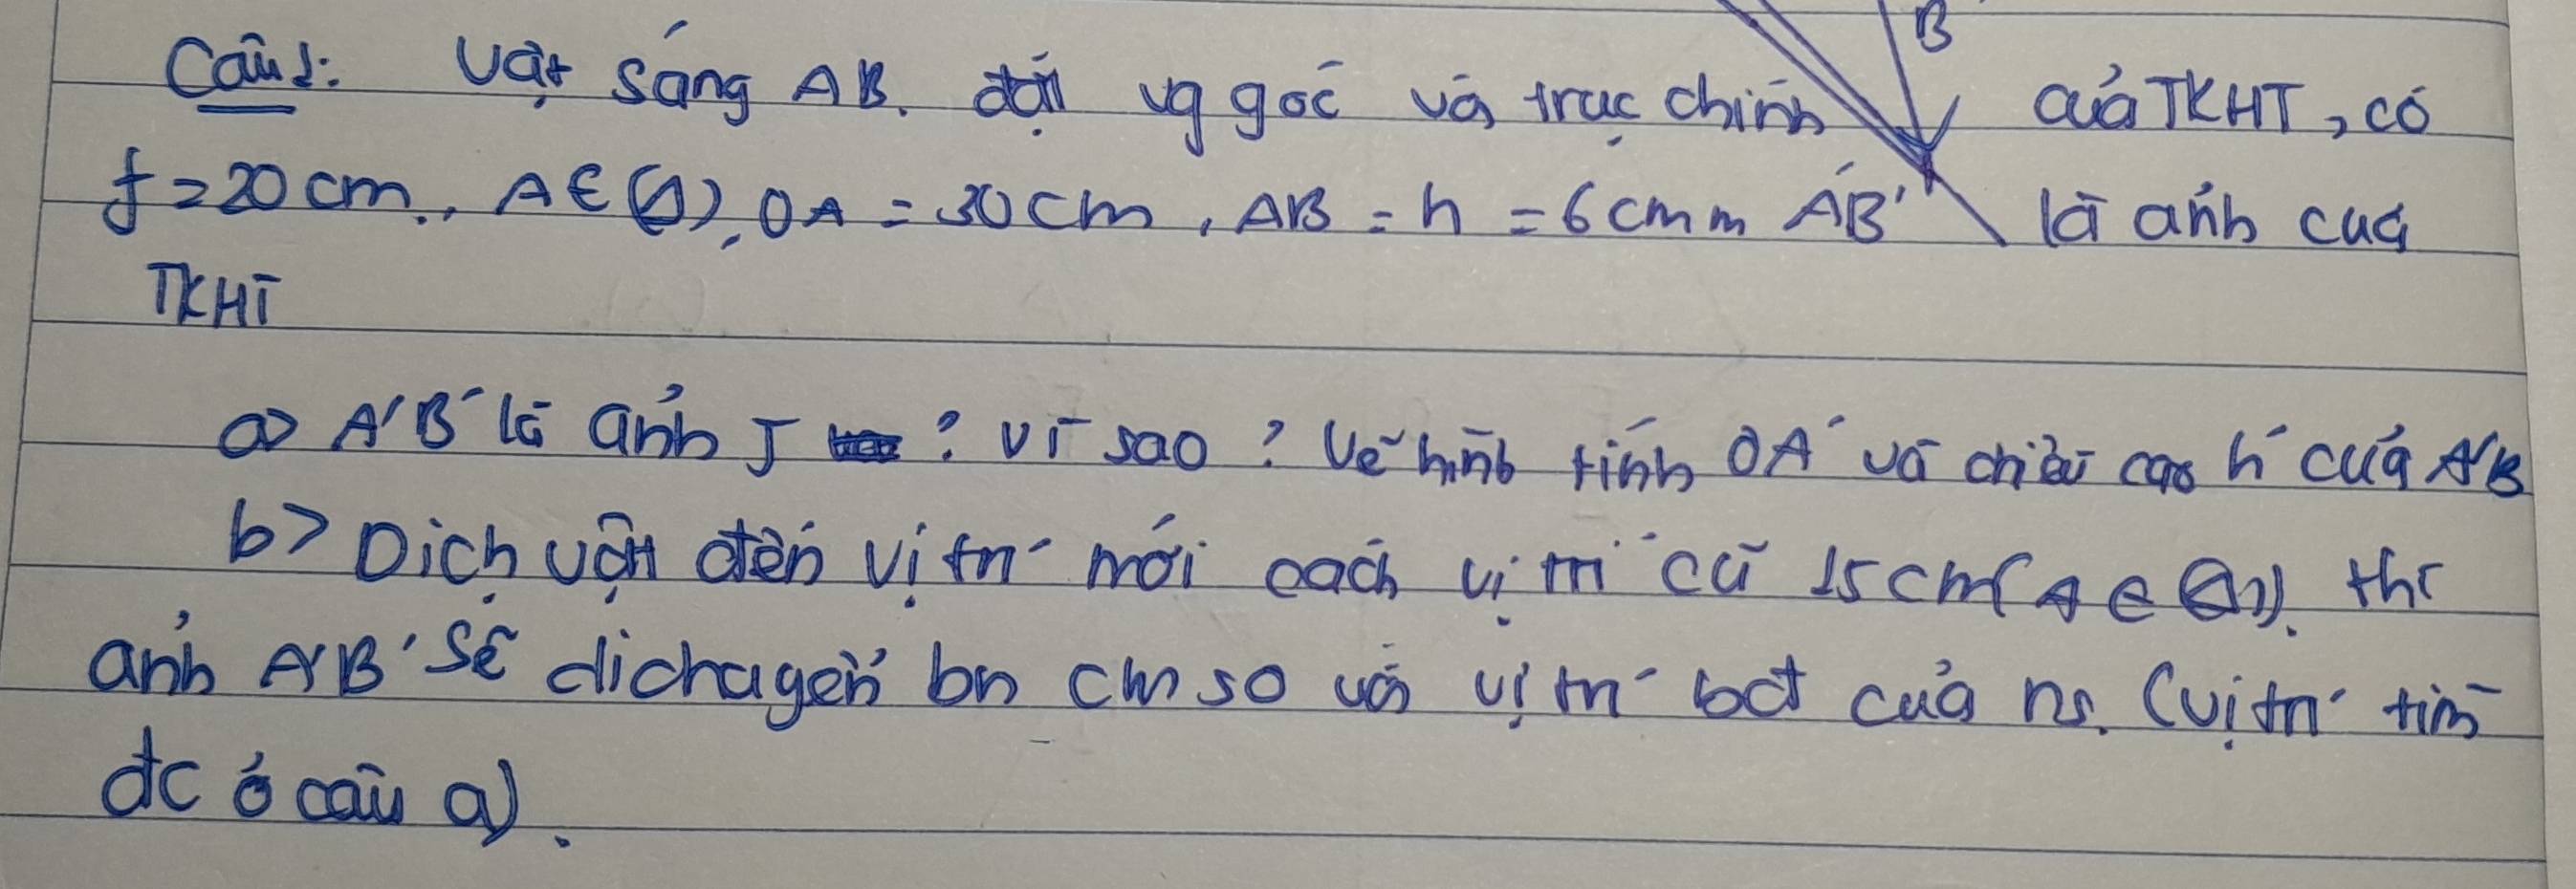 B
Câu 1: Vật sáng AB. đặt vg góc vớ trục chính của TKHT, có
f = 20 cm, A ∈ (Δ), OA = 30 cm, AB = h = 6 cm m A'B' là ảnh của
TKHT
a> A'B' là ảnh J ? Vì sao? Vẽ hình tính OA' và chiều cao h' của A'B
b> Dịch vật đến vị trí mới cách vị trí cũ 15 cm (A ∈ (Δ)). thì
ảnh A'B' sẽ dichuyển bn cm so vớ vị trí bđ của nó. (vị trí tìm
đc ở câu a).